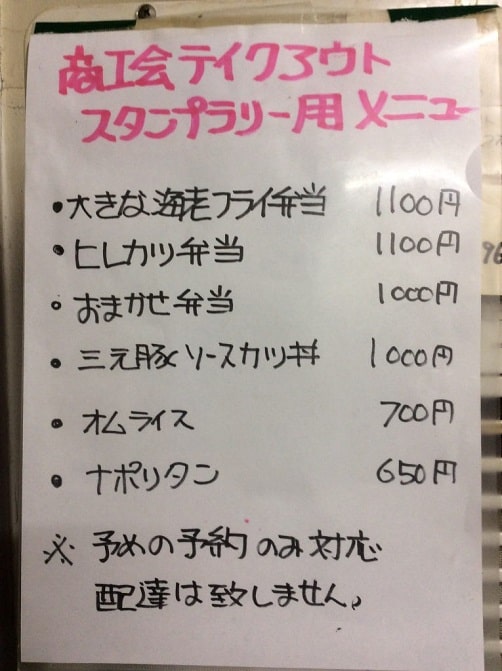 商工会テイクアウト
スタンプラリー用メニュー
・大きな海老フライ弁当 1100円
・ヒレカツ弁当 1100円
・おまかせ弁当 1000円
・三元豚ソースカツ丼 1000円
・オムライス 700円
・ナポリタン 650円
※ 予めの予約のみ対応
配達は致しません。